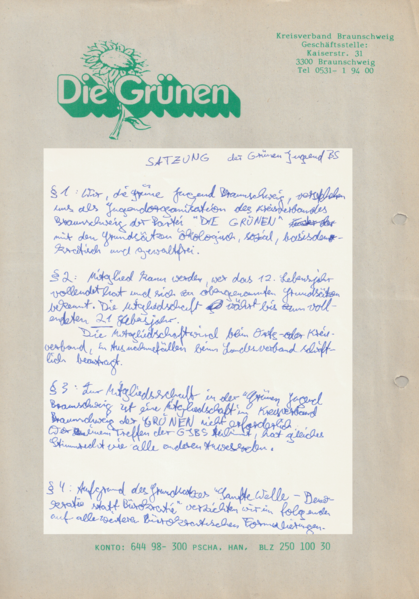 Kreisverband Braunschweig
Geschäftsstelle:
Kaiserstr. 31
3300 Braunschweig
Tel 0531- 1 94 00
Die Grünen
SATZUNG der Grünen Jugend BS
§ 1: Wir, die grüne Jugend Braunschweig, verstehen
uns als Jugendorganisation des Kreisverbandes
Braunschweig der Partei "DIE GRÜNEN"
mit den Grundsätzen ökologisch, sozial, basisdemo-
kratisch und gewaltfrei.
§ 2: Mitglied kann werden, wer das 12. Lebensjahr
vollendet hat und sich zu obengenannten Grundsätzen
bekennt. Die Mitgliedschaft währt bis zum voll-
endeten 21. Lebensjahr.
Die Mitgliedschaft wird beim Orts- oder Kreis-
verband, in Ausnahmefällen beim Landesverband schrift-
lich beantragt.
§ 3: Zur Mitgliedschaft in der "Grünen Jugend
Braunschweig ist eine Mitgliedschaft im Kreisverband
Braunschweig der GRÜNEN nicht erforderlich
Wer einem Treffen der GJBS beiwohnt, hat gleiches
Stimmrecht wie alle anderen Anwesenden.
§ 4: Aufgrund des Grundsatzes "Sanfte Welle - Demo-
kratie statt Bürokratie" verzichten wir im folgenden
auf alle weiteren Bürokratischen Formulierungen.
KONTO: 644 98- 300 PSCHA. HAN. BLZ 250 100 30